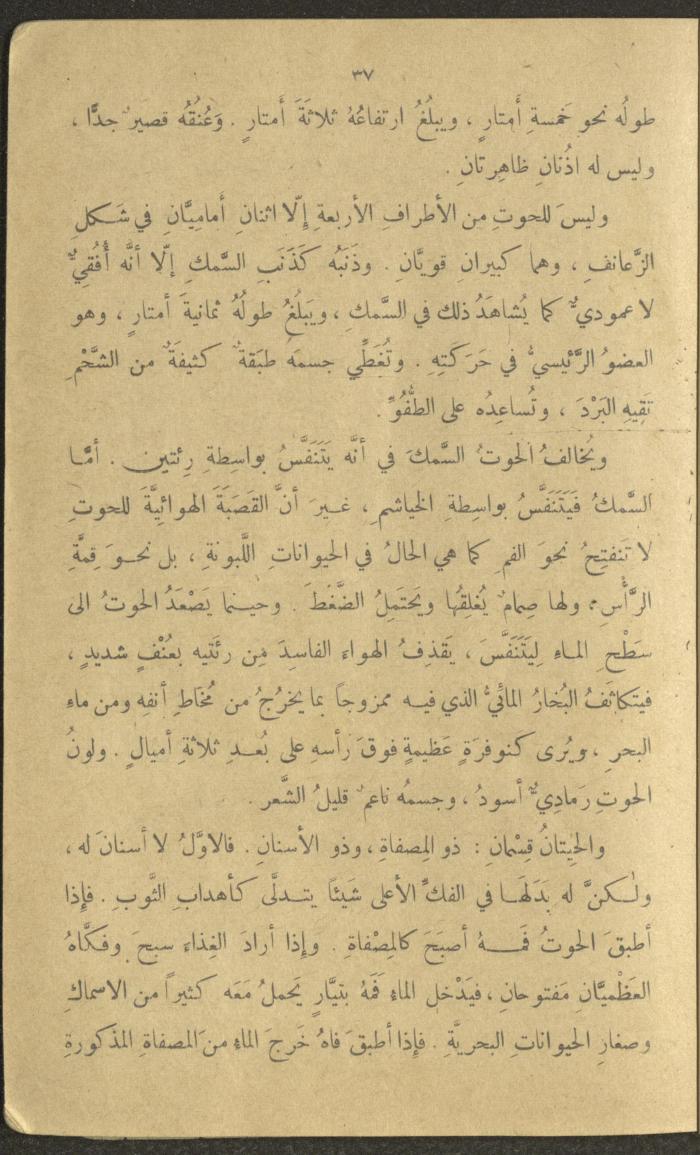 ٣٧
طولُه نحو خَمسةِ أَمتارٍ ، ويبلُغُ ارتفاعُهُ ثلاثَةَ أَمتارٍ . وَعُنُقُه قصيرٌ جدًّا ،
وليس له اذُنانِ ظاهِرتانِ .
وليسَ للحوتِ من الأَطرافِ الأَربعةِ إِلّا اثنانِ أَماميَّانِ في شَكلِ
الزَّعانفِ ، وهما كبيرانِ قويَّانِ . وذَنَبُه كَذَنَبِ السَّمكِ إِلّا أنَّه أُفُقِيٌّ
لا عموديٌّ كما يُشاهَدُ ذلك في السَّمكِ ، ويَبلُغُ طولُهُ ثمانيةَ أمتارٍ ، وهو
العضوُ الرَّئيسيُّ في حَرَكتِهِ . وتُغَطِّي جسمَهُ طبَقةٌ كثيفَةٌ من الشَّحْمِ
تَقِيهِ البَرْدَ ، وتُساعِدُه على الطَّفُوِّ .
ويُخالفُ الحوتُ السَّمكَ في أنَّه يَتَنَفَّسُ بواسِطةِ رِئتين . أمَّا
السَّمكُ فَيَتَنَفَّسُ بواسِطةِ الخياشمِ ، غيرَ أنَّ القَصَبَةَ الهوائيَّةَ للحوتِ
لا تَنفتِحُ نحوَ الفمِ كما هي الحالُ في الحيواناتِ اللَّبونةِ ، بل نحوَ قِمَّةِ
الرَّأْسِ ، ولها صِمامٌ يُغلِقُها ويحتَمِلُ الضَّغْطَ . وحينما يَصْعَدُ الحوتُ الى
سَطْحِ الماءِ لِيَتَنَفَّسَ ، يَقذِفُ الهواءَ الفاسِدَ مِن رئَتيه بعُنْفٍ شديدٍ ،
فيتكاثَفُ البُخارُ المائيُّ الذي فيه ممزوجاً بما يَخرُجُ من مُخَاطِ أنفهِ ومن ماءِ
البحرِ ، ويُرى كنوفرَةٍ عَظيمةٍ فوقَ رأسهِ على بُعدِ ثلاثةِ أميالٍ . ولونُ
الحوتِ رَماديٌّ أسودُ ، وجسمُه ناعمٌ قليلُ الشَّعر .
والحِيتانُ قِسْمانِ : ذو المِصفاةِ ، وذو الأسنانِ . فالاوَّلُ لا أسنانَ له ،
ولكنَّ له بَدَلَهَا في الفكِّ الأعلى شَيئاً يتدلَّى كأهدابِ الثَّوبِ . فإِذا
أطبقَ الحوتُ فَمَهُ أصبَحَ كالمِصْفاةِ . وإِذا أرادَ الغِذاءَ سبحَ وفكَّاهُ
العَظْميَّانِ مَفتوحانِ ، فيَدْخل الماءُ فَمَهُ بتيَّارٍ يَحملُ مَعَه كثيراً من الاسماكِ
وصغارِ الحيواناتِ البحريَّةِ . فإِذا أطبقَ فاهُ خَرجَ الماءُ منَ المصفاةِ المذكورةِ